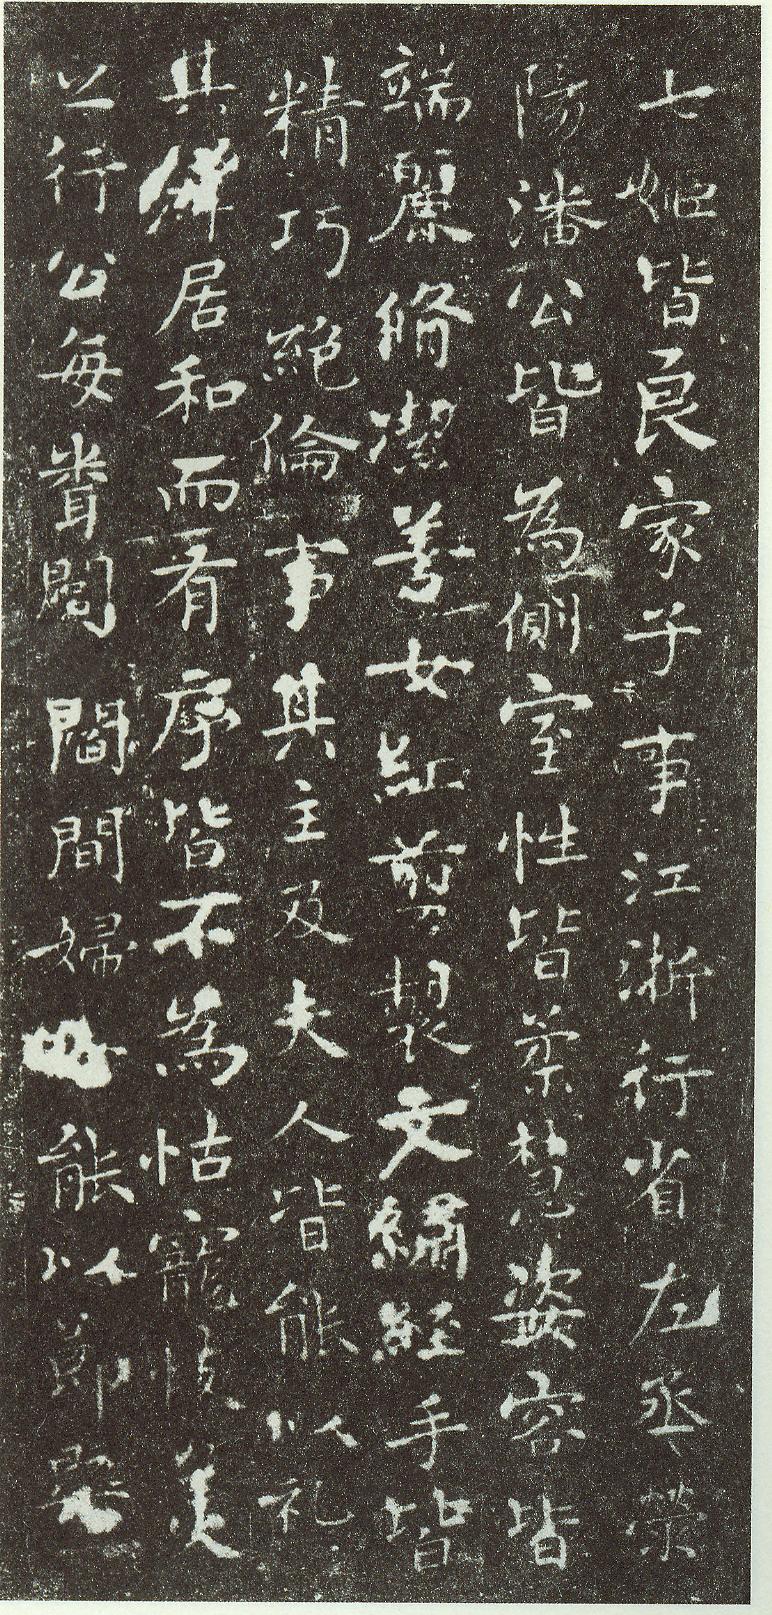 七姬皆良家子事江浙行省左丞榮
陽潘公皆為側室性皆柔慧姿容皆
端麗脩潔善女紅剪製文繡經手皆
精巧絕倫事其主及夫人皆能以礼
其群居和而有序皆不為怙寵忮美
之行公每聞閭閻間婦能以節